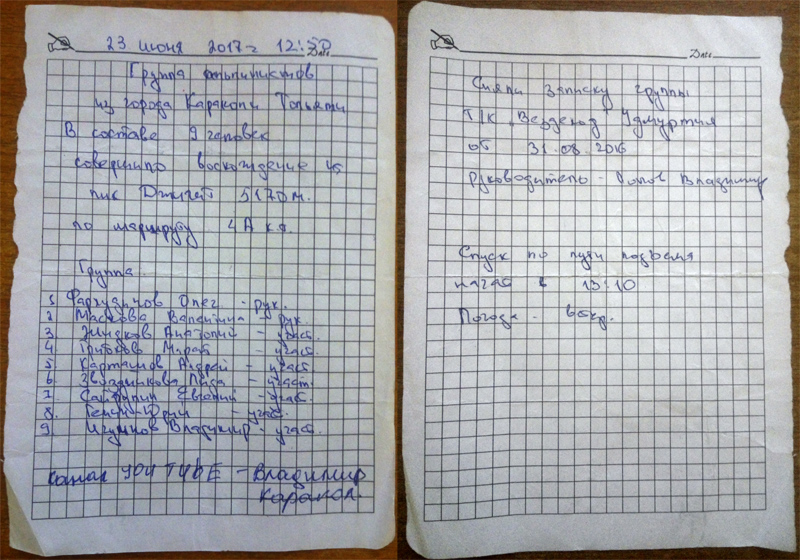 23 июня 2017 г 12:50
Date
Группа альпинистов
из города Каракол и Тольяти
В составе 9 человек
совершило восхождение на
пик Джигит 5170 м.
по маршруту 4А к.т.
Группа
1. Фархудинов Олег - рук.
2. Маскова Валентина - рук.
3. Жидков Анатолий - участ.
4. Марат - участ.
5. Карташов Андрей - участ.
6. Звёздникова Лида - участ.
7. Евгений - участ.
8. Юрий - участ.
9. Игумнов Владимир - участ.
канал YOU TUBE - Владимир
Каракол.
Date
Сняли записку группы
Т/К "Вездеход" Удмуртия
от 31.08.2016
Руководитель - Попов Владимир
Спуск по пути подъема
начат в 13:10
Погода -